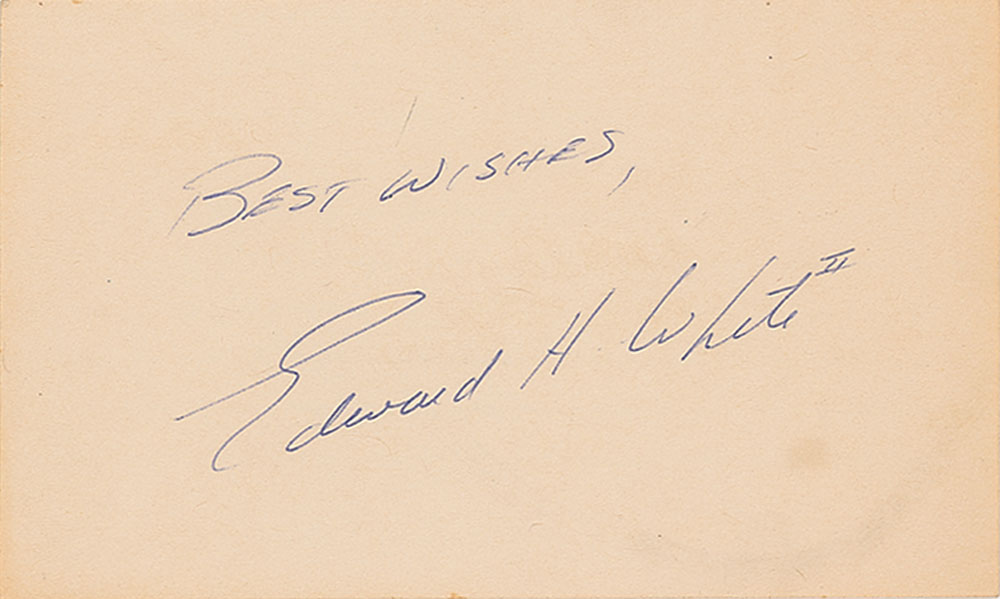 BEST WISHES,
Edward H White II